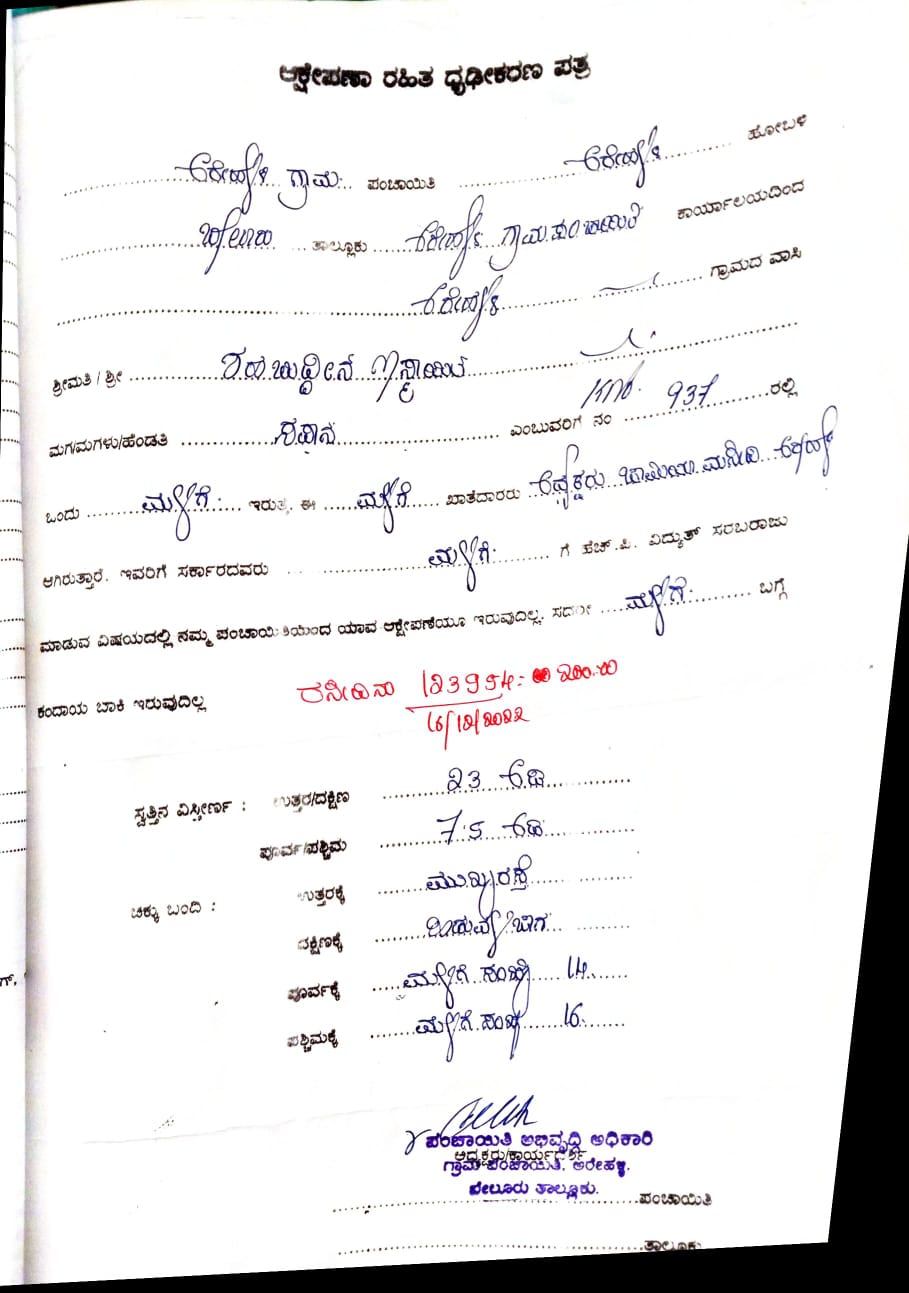 ಆಕ್ಷೇಪಣಾ ರಹಿತ ಧೃಢೀಕರಣ ಪತ್ರ
ಅರೇಹಳ್ಳಿ ಗ್ರಾಮ ಪಂಚಾಯಿತಿ ಅರೇಹಳ್ಳಿ ಹೋಬಳಿ
ಬೇಲೂರು ತಾಲ್ಲೂಕು ಅರೇಹಳ್ಳಿ ಗ್ರಾಮ ಪಂಚಾಯಿತಿ ಕಾರ್ಯಾಲಯದಿಂದ
ಅರೇಹಳ್ಳಿ ಗ್ರಾಮದ ವಾಸಿ
ಶ್ರೀಮತಿ / ಶ್ರೀ
ಮಗ/ಮಗಳು/ಹೆಂಡತಿ ಎಂಬುವರಿಗೆ ನಂ 937 ರಲ್ಲಿ
ಒಂದು ಮಳಿಗೆ ಇರುತ್ತೆ, ಈ ಮಳಿಗೆ ಖಾತೆದಾರರು ಅಧ್ಯಕ್ಷರು ಜಾಮಿಯಾ ಮಸೀದಿ ಅರೇಹಳ್ಳಿ
ಆಗಿರುತ್ತಾರೆ. ಇವರಿಗೆ ಸರ್ಕಾರದವರು ಮಳಿಗೆ ಗೆ ಹೆಚ್.ಪಿ. ವಿದ್ಯುತ್ ಸರಬರಾಜು
ಮಾಡುವ ವಿಷಯದಲ್ಲಿ ನಮ್ಮ ಪಂಚಾಯಿತಿಯಿಂದ ಯಾವ ಆಕ್ಷೇಪಣೆಯೂ ಇರುವುದಿಲ್ಲ. ಸದರೀ ಮಳಿಗೆ ಬಗ್ಗೆ
ಕಂದಾಯ ಬಾಕಿ ಇರುವುದಿಲ್ಲ ರಸೀದಿ ನಂ
16/12/2022
ಸ್ವತ್ತಿನ ವಿಸ್ತೀರ್ಣ : ಉತ್ತರ/ದಕ್ಷಿಣ 23 ಅಡಿ
ಪೂರ್ವ/ಪಶ್ಚಿಮ 7.5 ಅಡಿ
ಚಕ್ಕು ಬಂದಿ : ಉತ್ತರಕ್ಕೆ ಮುಖ್ಯರಸ್ತೆ
ದಕ್ಷಿಣಕ್ಕೆ
ಪೂರ್ವಕ್ಕೆ ಮಳಿಗೆ ಸಂಖ್ಯೆ 14.
ಪಶ್ಚಿಮಕ್ಕೆ ಮಳಿಗೆ ಸಂಖ್ಯೆ 16.
ಪಂಚಾಯಿತಿ ಅಭಿವೃದ್ಧಿ ಅಧಿಕಾರಿ
ಅಧ್ಯಕ್ಷರು/ಕಾರ್ಯದರ್ಶಿ
ಗ್ರಾಮ ಪಂಚಾಯಿತಿ. ಅರೇಹಳ್ಳಿ.
ಬೇಲೂರು ತಾಲ್ಲೂಕು.
ಪಂಚಾಯಿತಿ
ತಾಲ್ಲೂಕು